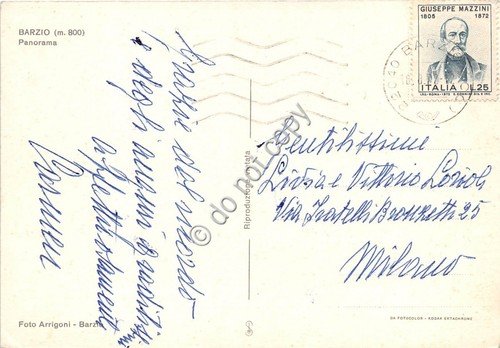 BARZIO (m. 800)
Panorama
Grazie del ricordo
e degli auguri
affettuosamente
Carmen
Foto Arrigoni - Barzio
Riproduzione vietata
GIUSEPPE MAZZINI
1805 1872
ITALIA L.25
BARZ
Gentilissimi
Lidia e Vittorio
Via Fratelli Bronzetti 25
Milano
DA FOTOCOLOR - KODAK EKTACHROME
© do not copy